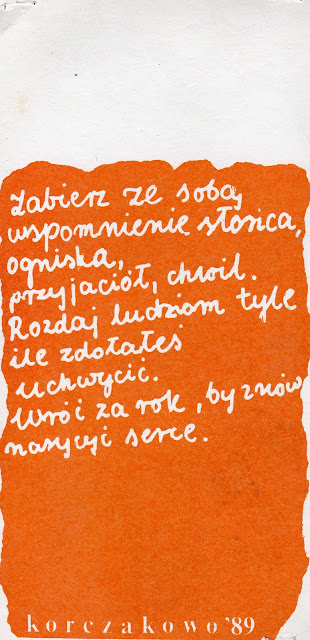 Zabierz ze sobą
wspomnienie słońca,
ogniska,
przyjaciół, chwil.
Rozdaj ludziom tyle
ile zdołałeś
uchwycić.
Wróć za rok, by znów
nasycić serce.
korczakowo '89